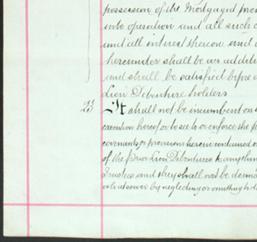 possession of the Mortgaged prem
into operation and all such
and all interest thereon and
hereunder shall be an addit
and shall be satisfied before
Lien Debenture holders
23 It shall not be incumbent on
execution hereof or to see to or enforce the p
covenants or provisions herein contained or
of the Prior Lien Debentures to any
Trustees and they shall not be deem
or by neglecting or omitting to